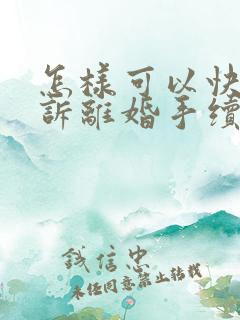 怎樣可以快
訴離婚手續
錢信忠
未经同意禁止转载